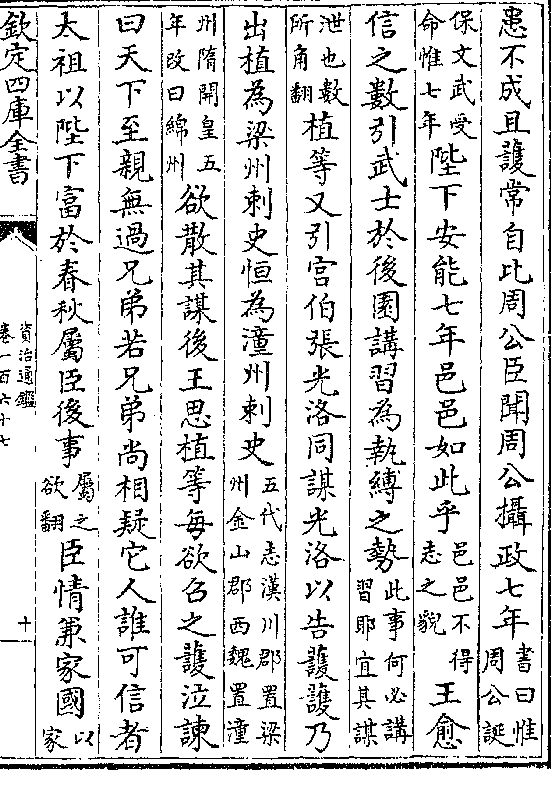 患不成且護常自比周公臣聞周公攝政七年書曰惟周公誕
保文武受命惟七年陛下安能七年邑邑如此乎邑邑不得志之貌王愈
信之數引武士於後園講習為執縛之勢此事何必講習耶宜其謀
泄也數所角翻植等又引宫伯張光洛同謀光洛以告護護乃
出植為梁州刺史恒為潼州刺史五代志漢川郡置梁州金山郡西魏置潼
州隋開皇五年改曰綿州欲散其謀後王思植等每欲召之護泣諫
曰天下至親無過兄弟若兄弟尚相疑它人誰可信者
太祖以陛下富於春秋屬臣後事屬之欲翻臣情兼家國以家
欽定四庫全書
資治通鑑
卷一百六十七
十